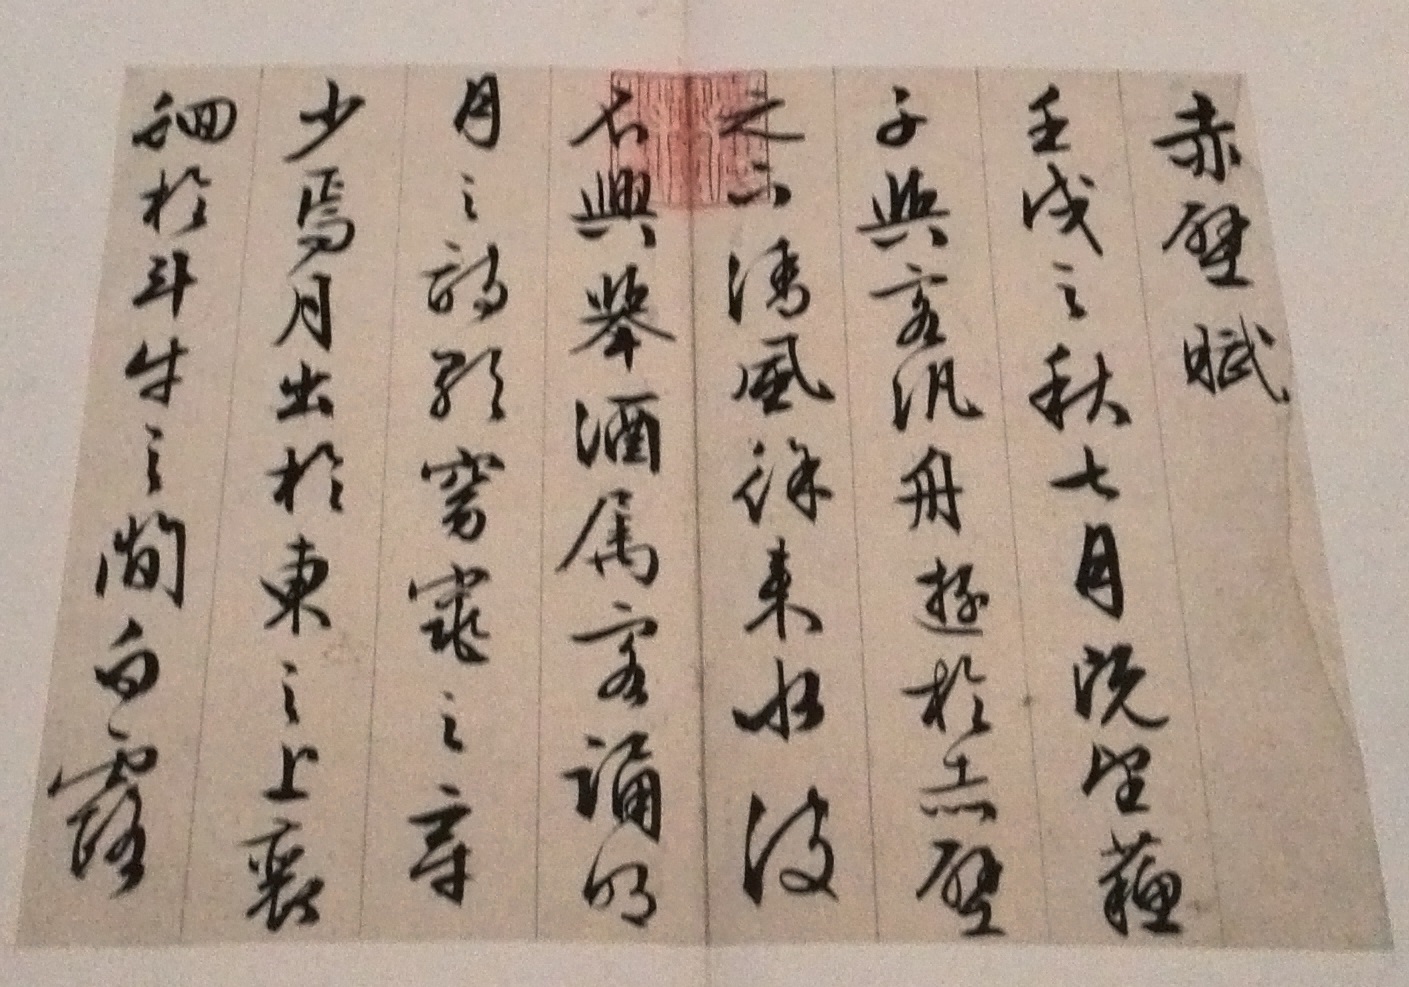 赤壁賦
壬戌之秋七月既望蘇
子與客汎舟遊於赤壁
之下清風徐來水波
不興舉酒属客誦明
月之詩歌窈窕之章
少焉月出於東之上裵
佪於斗牛之間白露